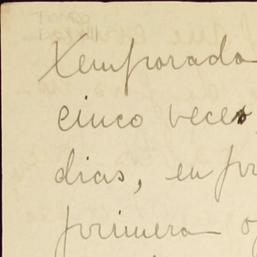 Xemporado
cinco veces
dias, en pr
primera o